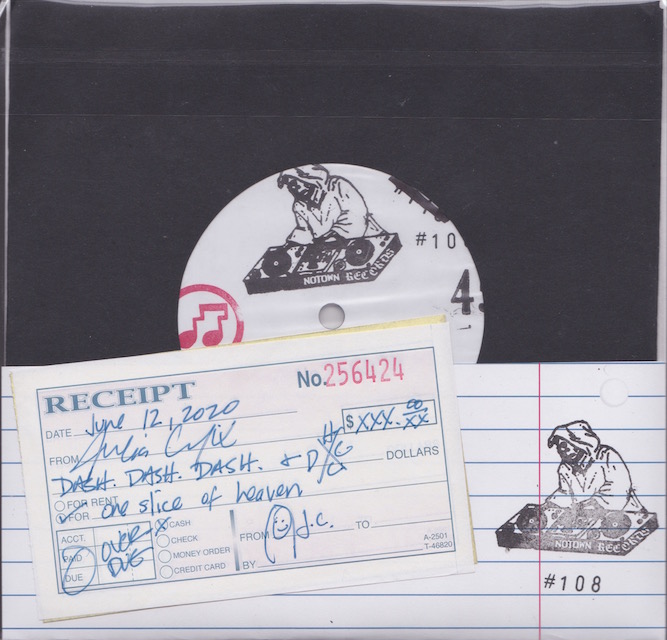 #10
NOTOWN RECORDS
4
RECEIPT
No. 256424
DATE June 12, 2020
FROM Julia
$XXX. 00/XX
DASH. DASH. DASH. + D
DOLLARS
FOR RENT
FOR one slice of heaven
ACCT.
PAID
DUE
OVER-
DUE
CASH
CHECK
MONEY ORDER
CREDIT CARD
FROM J.C. TO
BY
A-2501
T-46820
NOTOWN RECORDS
#108